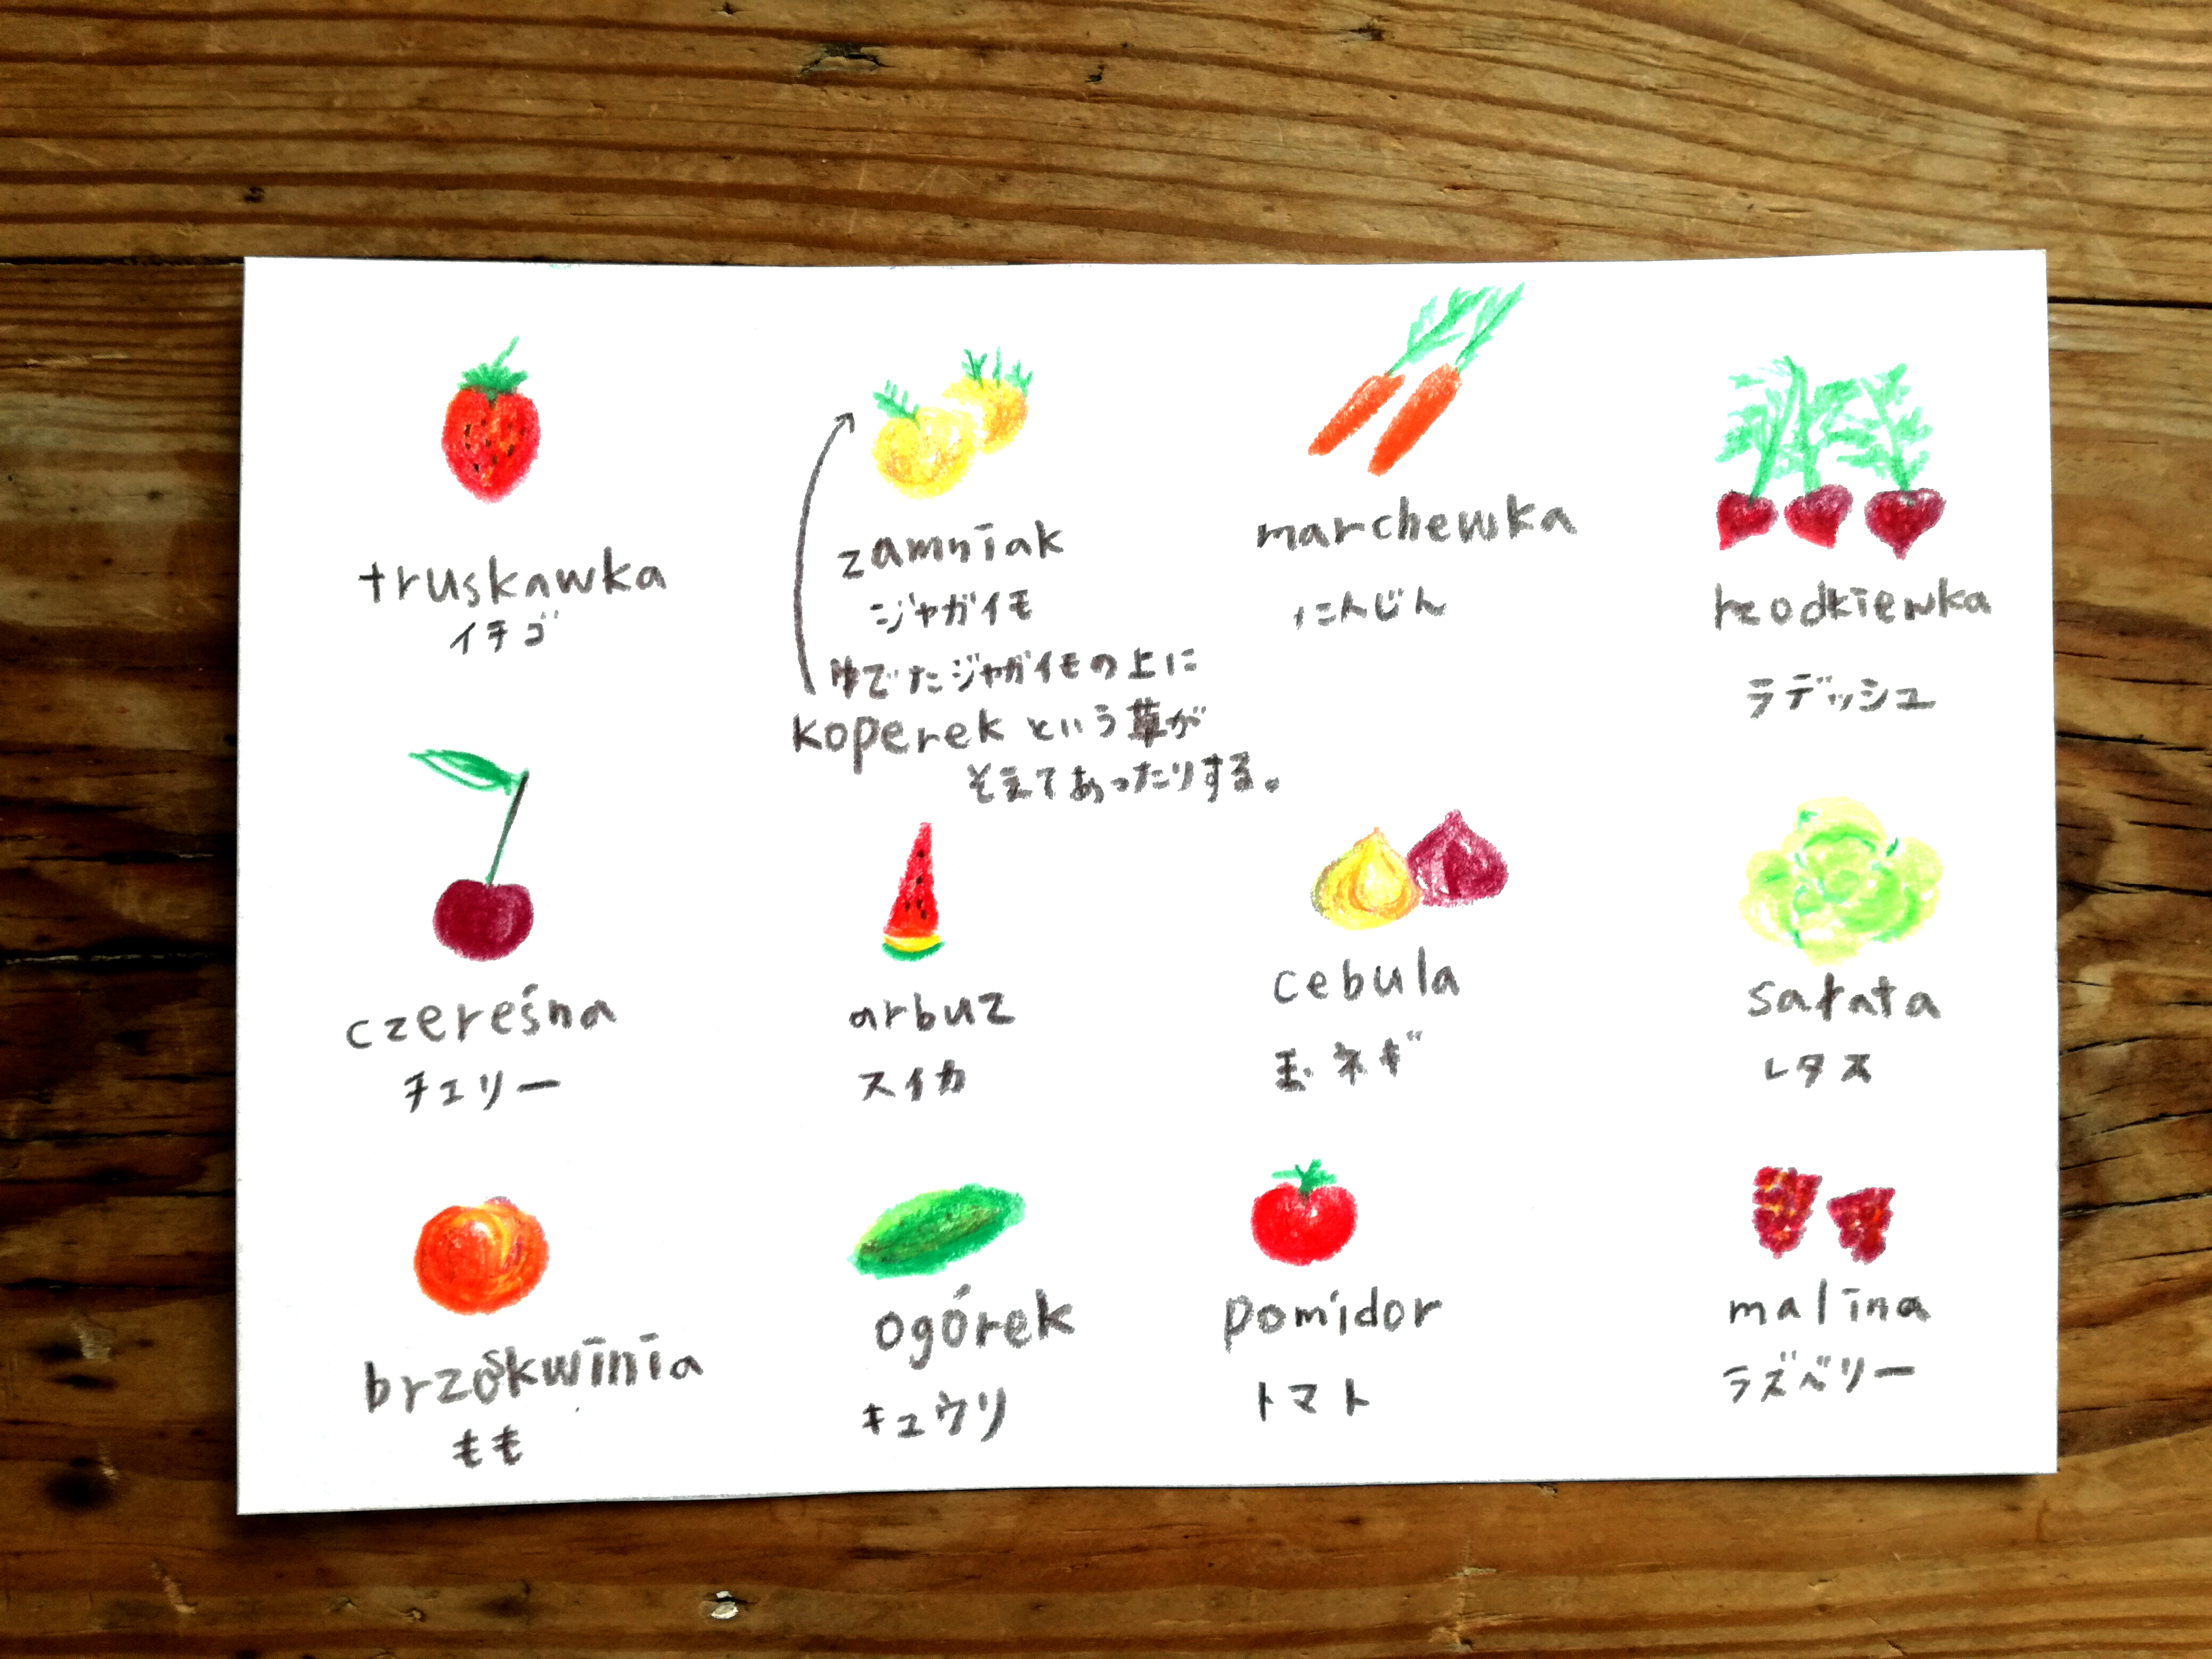 truskawka
イチゴ
zamniak
ジャガイモ
ゆでたジャガイモの上に
koperekという草が
そえてあったりする。
marchewka
にんじん
rzodkiewka
ラディッシュ
czereśna
チェリー
arbuz
スイカ
cebula
玉ネギ
sałata
レタス
brzoskwinia
もも
ogórek
キュウリ
pomidor
トマト
malina
ラズベリー